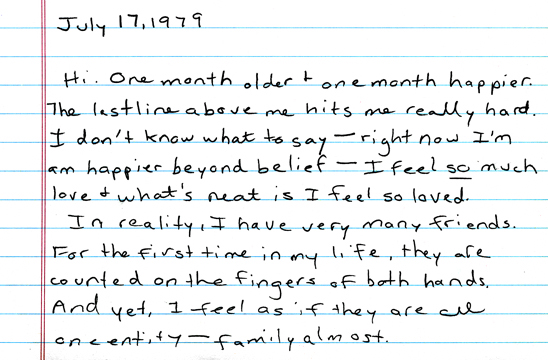 July 17, 1979
Hi. One month older + one month happier.
The last line above me hits me really hard.
I don't know what to say — right now I'm
am happier beyond belief — I feel so much
love + what's neat is I feel so loved.
In reality, I have very many friends.
For the first time in my life, they are
counted on the fingers of both hands.
And yet, I feel as if they are all
one entity — family almost.